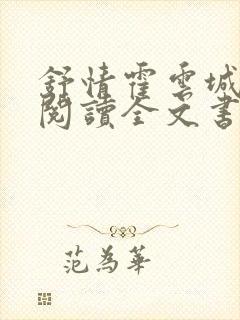 舒情霍雲城
閱讀全文書
范為華